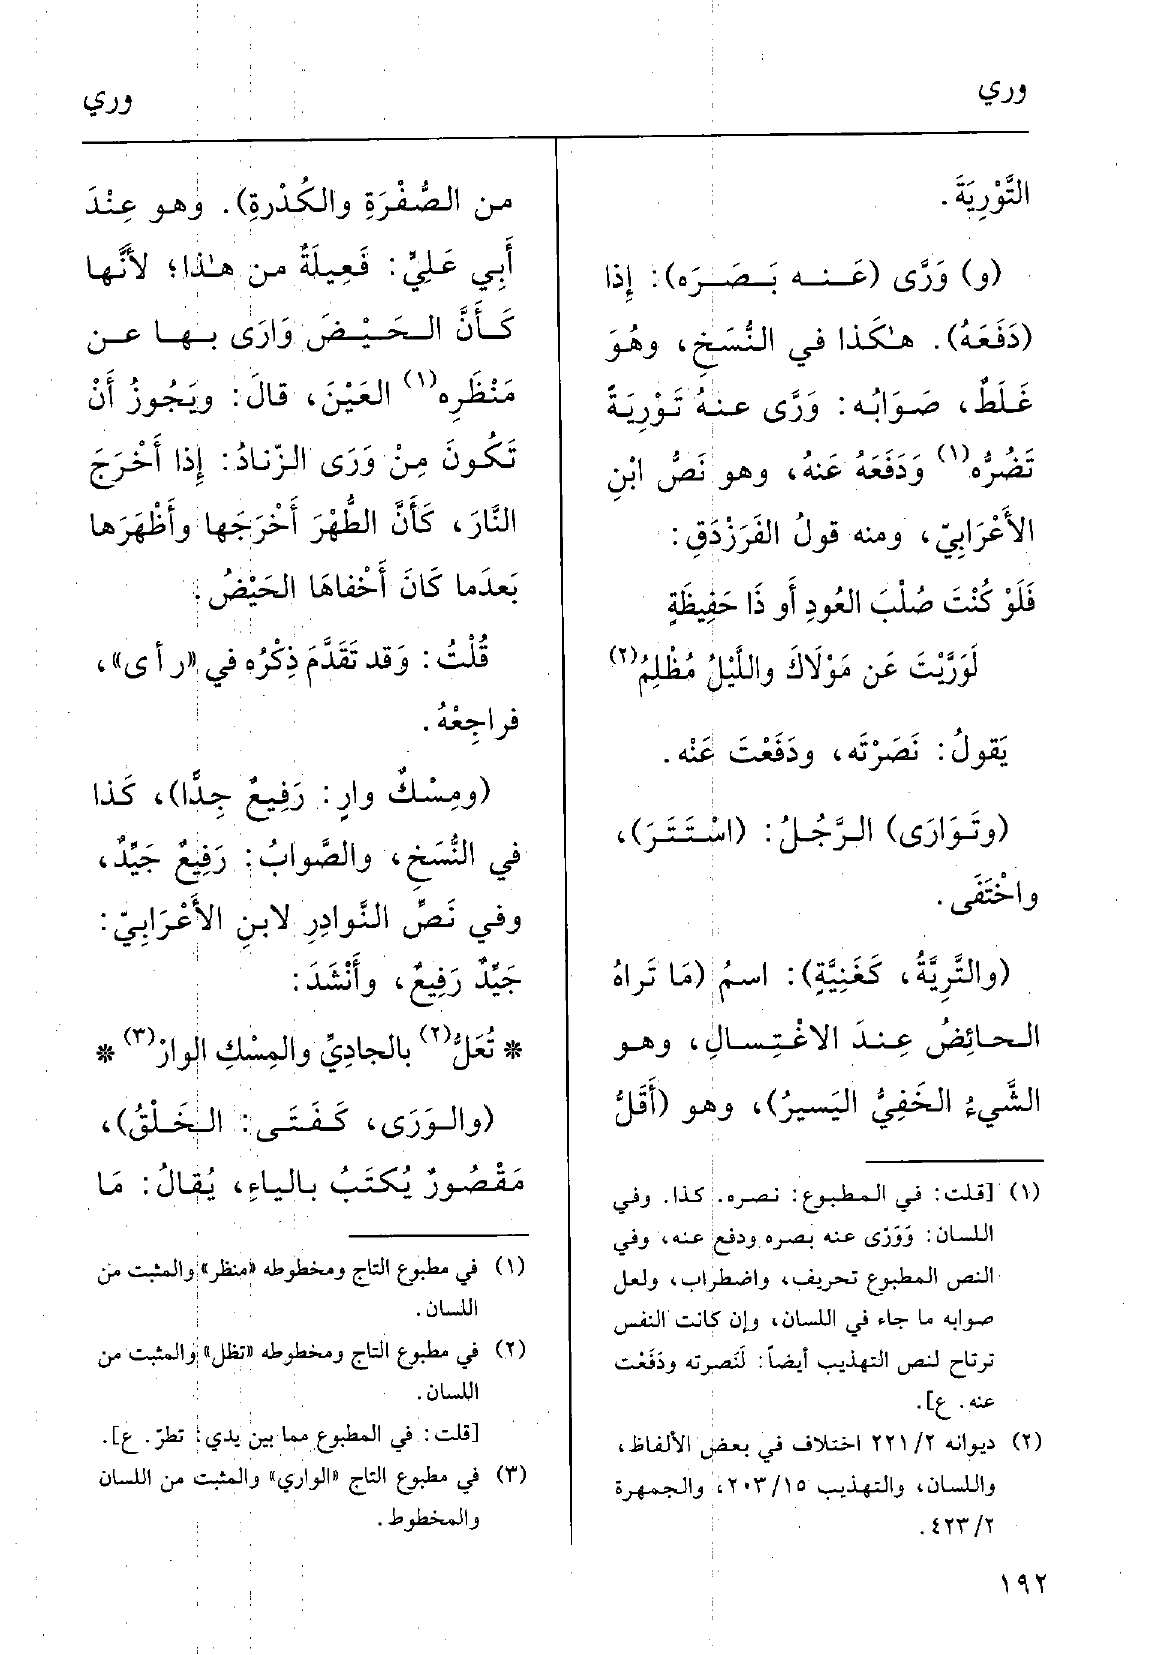 وري
وري
التَّوْرِيَةَ.
(و) وَرَّى (عَنه بَصَرَه): إِذا
(دَفَعَهُ). هكَذا في النُّسَخِ، وهُوَ
غَلَطٌ، صَوَابُه: وَرَّى عنهُ تَوْرِيَةً
تَضُرُّه(١) وَدَفَعَهُ عَنهُ، وهو نَصُّ ابْنِ
الأَعْرَابِيّ، ومنه قولُ الفَرَزْدَقِ:
فَلَوْ كُنْتَ صُلْبَ العُودِ أَو ذَا حَفِيظَةٍ
لَوَرَّيْتَ عَن مَوْلَاكَ واللَّيْلُ مُظْلِمُ(٢)
يَقولُ: نَصَرْتَه، ودَفَعْتَ عَنْه.
(وتَوَارَى) الرَّجُلُ: (اسْتَتَرَ)،
واخْتَفَى.
(والتَّرِيَّةُ، كَغَنِيَّةٍ): اسمُ (مَا تَراهُ
الحائِضُ عِندَ الاغْتِسالِ، وهو
الشَّيءُ الخَفِيُّ اليَسيرُ)، وهو (أَقَلُّ
(١) [قلت: في المطبوع: نصره. كذا. وفي
اللسان: وَوَرّى عنه بصره ودفع عنه، وفي
النص المطبوع تحريف، واضطراب، ولعل
صوابه ما جاء في اللسان، وإن كانت النفس
ترتاح لنص التهذيب أيضاً: لَنَصرته ودَفَعْت
عنه. ع].
(٢) ديوانه ٢/ ٢٢١ اختلاف في بعض الألفاظ،
واللسان، والتهذيب ١٥/ ٢٠٣، والجمهرة
٢/ ٤٢٣.
من الصُّفْرَةِ والكُدْرةِ). وهو عِنْدَ
أَبي عَلِيٍّ: فَعِيلَةٌ من هذا؛ لأَنَّها
كَأَنَّ الحَيْضَ وَارَى بها عن
مَنْظَرِه(١) العَيْنَ، قالَ: ويَجُوزُ أَنْ
تَكُونَ مِنْ وَرَى الزّنادُ: إِذا أَخْرَجَ
النَّارَ، كَأَنَّ الطُّهْرَ أَخْرَجَها وأَظْهَرَها
بَعدَما كَانَ أَخْفاهَا الحَيْضُ.
قُلْتُ: وَقد تَقَدَّمَ ذِكْرُه في «ر أ ى»،
فراجِعْهُ.
(ومِسْكٌ وارٍ: رَفِيعٌ جِدًّا)، كَذا
في النُّسَخِ، والصَّوابُ: رَفِيعٌ جَيِّدٌ،
وفي نَصِّ النَّوادِرِ لابنِ الأَعْرَابِيّ:
جَيِّدٌ رَفِيعٌ، وأَنْشَدَ:
* تُعَلُّ(٢) بالجادِيِّ والمِسْكِ الوارْ(٣) *
(والوَرَى، كَفَتَى: الخَلْقُ)،
مَقْصُورٌ يُكتَبُ بالياءِ، يُقالُ: مَا
(١) في مطبوع التاج ومخطوطه «منظر» والمثبت من
اللسان.
(٢) في مطبوع التاج ومخطوطه «تظل» والمثبت من
اللسان.
[قلت: في المطبوع مما بين يدي: تطرّ. ع].
(٣) في مطبوع التاج «الواري» والمثبت من اللسان
والمخطوط.
١٩٢